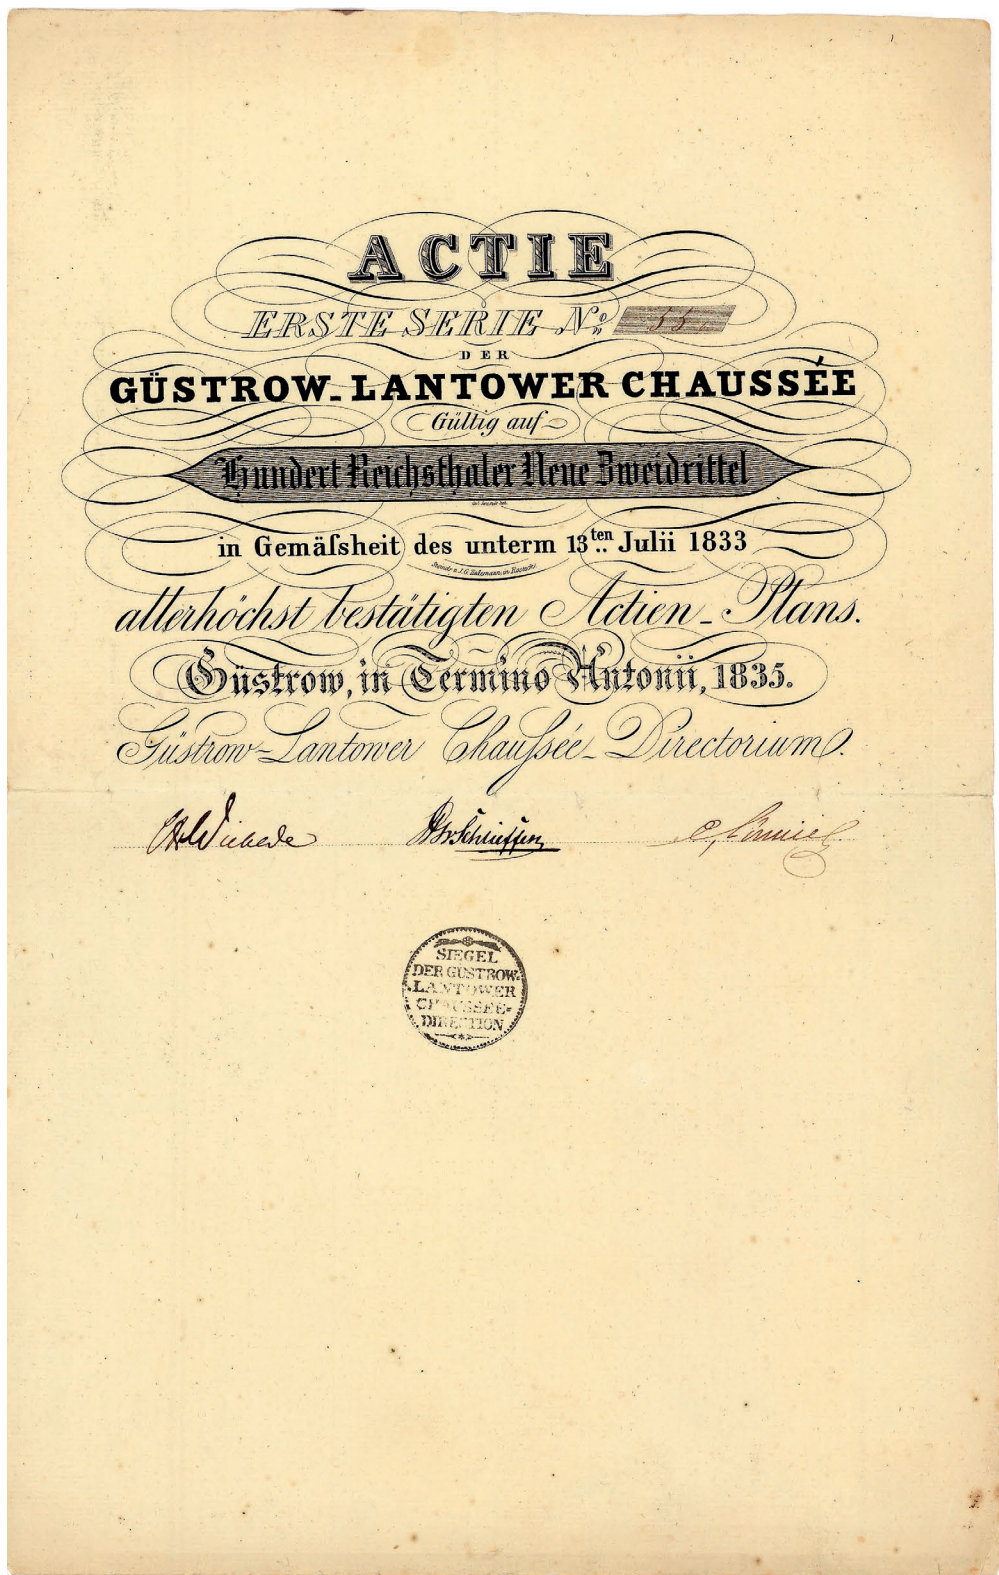 ACTIE
ERSTE SERIE No. 55.
DER
GÜSTROW-LANTOWER CHAUSSÉE
Gültig auf
Hundert Reichsthaler Neue Zweidrittel
in Gemäſsheit des unterm 13ten Julii 1833
allerhöchst bestätigten Actien-Plans.
Güstrow, in Termino Antonii, 1835.
Güstrow-Lantower Chauſsée-Directorium.
SIEGEL
DER GÜSTROW-
LANTOWER
CHAUSSEE-
DIRECTION